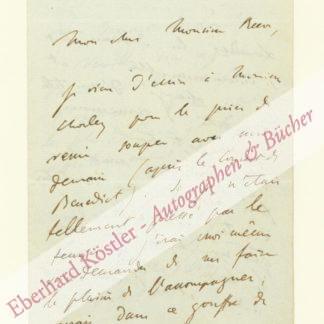 Mon cher Monsieur Reeve,
Je viens d'écrire à Monsieur
Chorley pour le prier de
venir souper avec nous
demain (après le concert
Benedict). n'étais
tellement pressé par le
temps j'irais moi même
demander de me faire
le plaisir de l'accompagner,
mais dans ce gouffre de
Eberhard Köstler - Autographen & Bücher